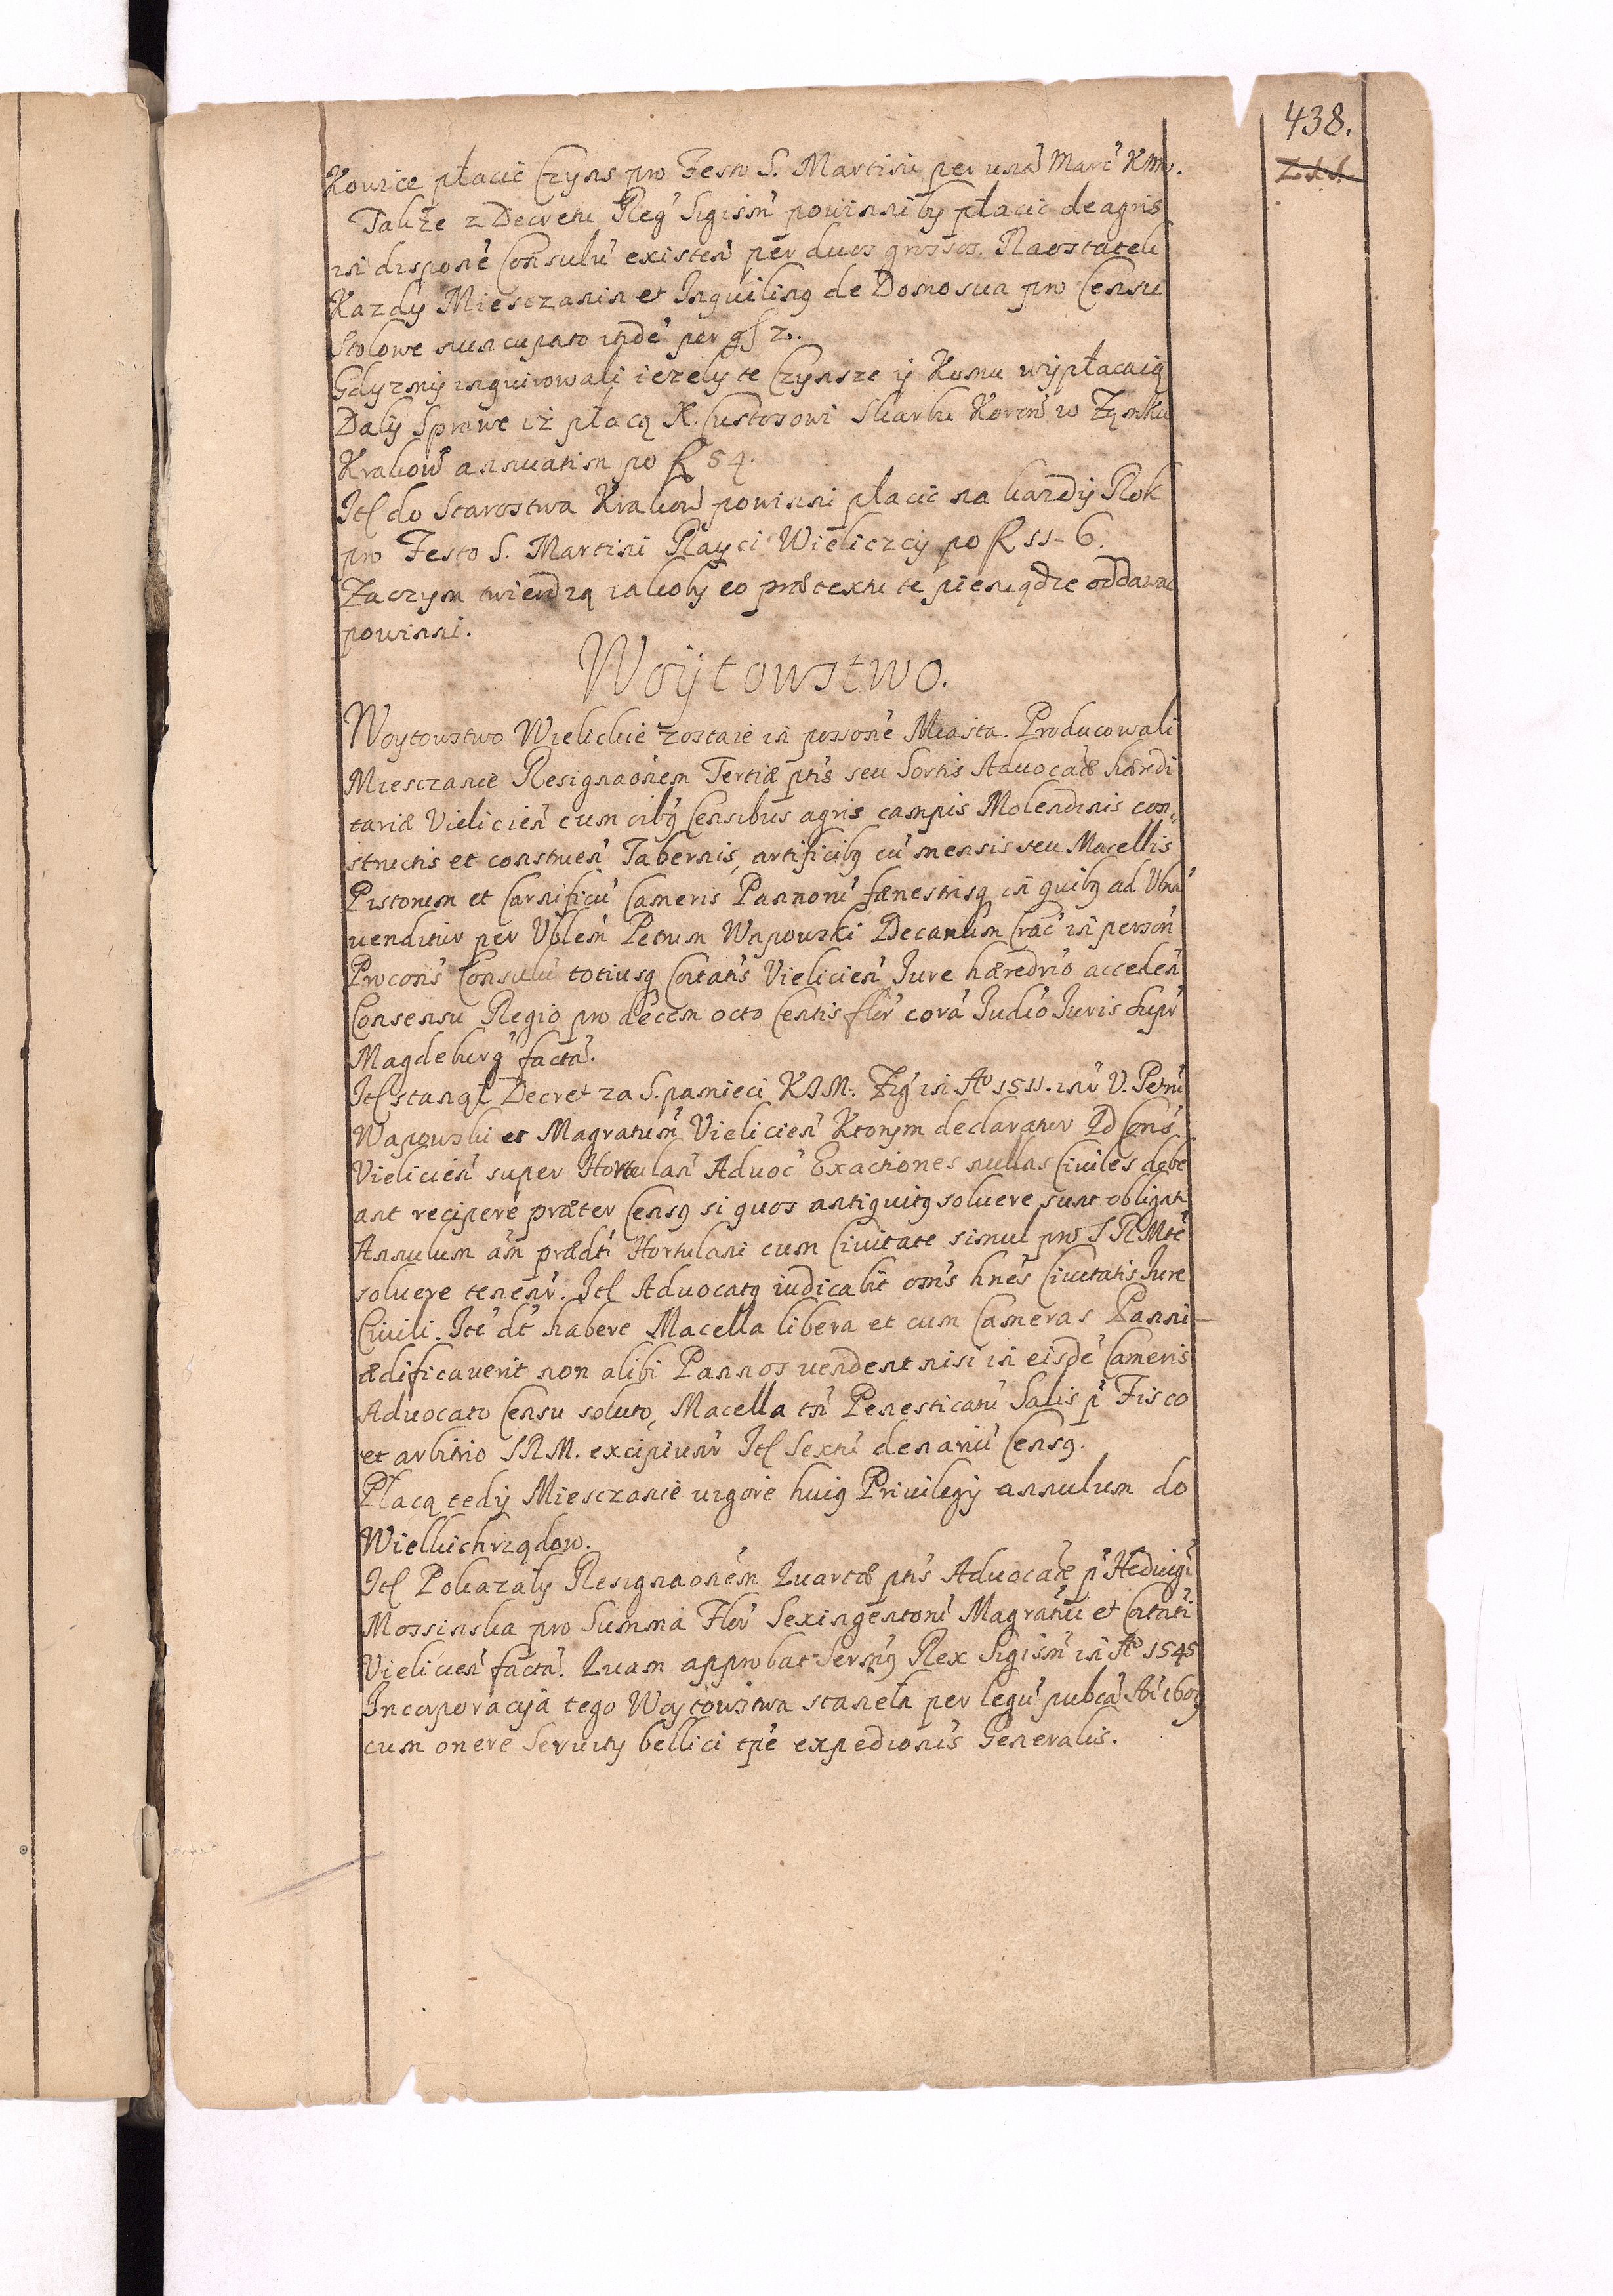 438.
Kowice płacic Czyns pro Festo S. Martini per unã Marc̃ Km.
Takze z Decretu Reg̃ Sigism̃ powinniby płacic de agris
in disponẽ Consulũ existen̄ per duos grossos. Naostatek
Kazdy Miesczanin et Inquilinꝰ de Domo sua pro Censu
Stolowe nuncupato itidẽ per gſ 2.
Gdyzmy inquirowali iezely te Czynsze y Komu wypłacaią
Daly Sprawe iż płacą X. Custosowi Skarbu Koron̄ w Zamku
Krakow̄ annuatim po ƒ 54.
Itſ do Starostwa Krakow̄ powinni płacic na kazdy Rok
pro Festo S. Martini Rayci Wieliczcy po ƒ 11 - 6.
Zaczym twierdzą iakoby eo prætextu te pieniądze oddawac
powinni.
Woytowstwo.
Woytowstwo Wielickie zostaie in possonẽ Miasta. Producowali
Miesczanie Resignaonẽm Tertiæ ptis seu Sortis Advocatæ hæredi
tariæ Vielicien̄ cum oibꝰ Censibus agris campis Molendinis con„
structis et construen̄ Tabernis, artificibꝰ cũ mensis seu Macellis
Pistorum et Carnificũ Cameris Pannorũ fænestrisꝗ in quibꝰ ad Vlnã
venditur per Vblem̃ Petrum Wapowski Decanum Crac̃ in person̄
Procons̃ Consulũ totiusꝗ Cõitatis Vielicien̄ Iure hæredrio acceden̄
Consensu Regio pro decem octo Centis flor̃ corã Iudio Iuris Supr̃
Magdeburg̃ factã.
Itſ stanął Decret za S. pamieci KIM. Zig̃ in Aº 1511. intr̃ V. Petrũ
Wapowski et Magratum̃ Vielicien̄ Ktorym declaratur Qd Cons̃
Vielicien̄ super Hortulan̄ Advoc̃ Exactiones nullas Ciuiles debe
ant recipere præter Censꝰ si quos antiquitꝰ soluere sunt obligati
Annulum am̃ prædti Hortulani cum Ciuitate simul pro S R Mtẽ
soluere tenenr̃. Itſ Advocatꝰ iudicabit oms̃ hnẽs Ciuitatis Iure
Ciuili. Itẽ dt̃ habere Macella libera et cum Cameras Panni
ædificauerit non alibi Pannos vendent nisi in eisdẽ Cameris
Advocato Censu soluto, Macella tñ Penesticarũ Salis p̃ Fisco
et arbitrio SRM. excipiunr̃ Itſ Sextũ denariũ Censꝰ.
Płacą tedy Miesczanie vigore huiꝰ Privilegij annulum do
Wielkichrządow.
Itſ Pokazaly Resignaonẽm Quartæ ptis Advocatæ p̃ Hedvigĩ
Mossinska pro Summa Flor̃ Sexingentorũ Magratui et Cõitati
Vielicien̄ factã. Quam approbat Sermꝰ Rex Sigism̃ in Aº 1545
Incorporacya tego Woytowstwa staneła per legẽ pubcã
cum onere Seruitij bellici tpẽ expedionis Generalis.